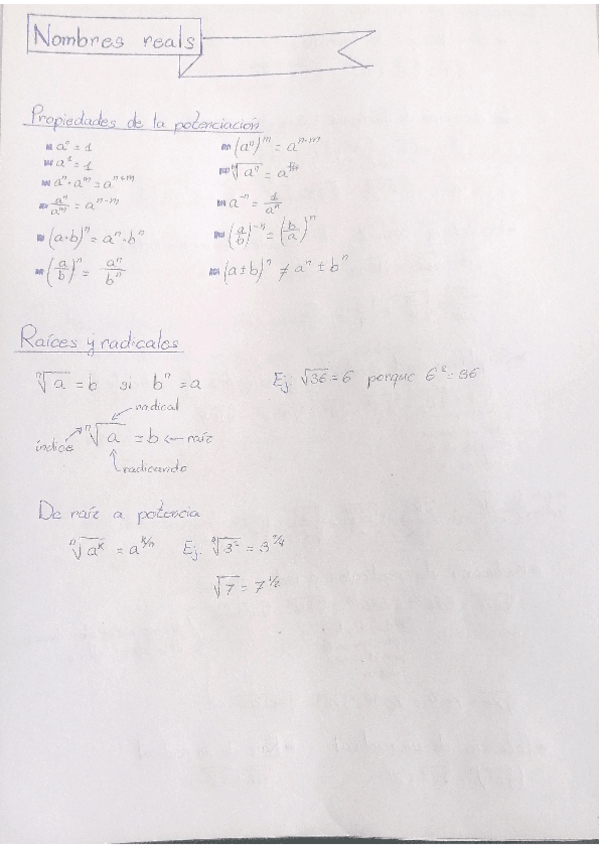 Nombres reals
Propiedades de la potenciación
a⁰ = 1
a¹ = 1
aⁿ · aᵐ = aⁿ⁺ᵐ
aⁿ/aᵐ = aⁿ⁻ᵐ
(a·b)ⁿ = aⁿ · bⁿ
(a/b)ⁿ = aⁿ/bⁿ
(aⁿ)ᵐ = aⁿ·ᵐ
ᵐ√aⁿ = a^(n/m)
a⁻ⁿ = 1/aⁿ
(a/b)⁻ⁿ = (b/a)ⁿ
(a±b)ⁿ ≠ aⁿ ± bⁿ
Raíces y radicales
ⁿ√a = b si bⁿ = a Ej: √36 = 6 porque 6² = 36
radical
índice ⁿ√a = b ← raíz
radicando
De raíz a potencia
ⁿ√aᵏ = a^(k/n) Ej. √3² = 3^(2/4)
√7 = 7^(1/2)